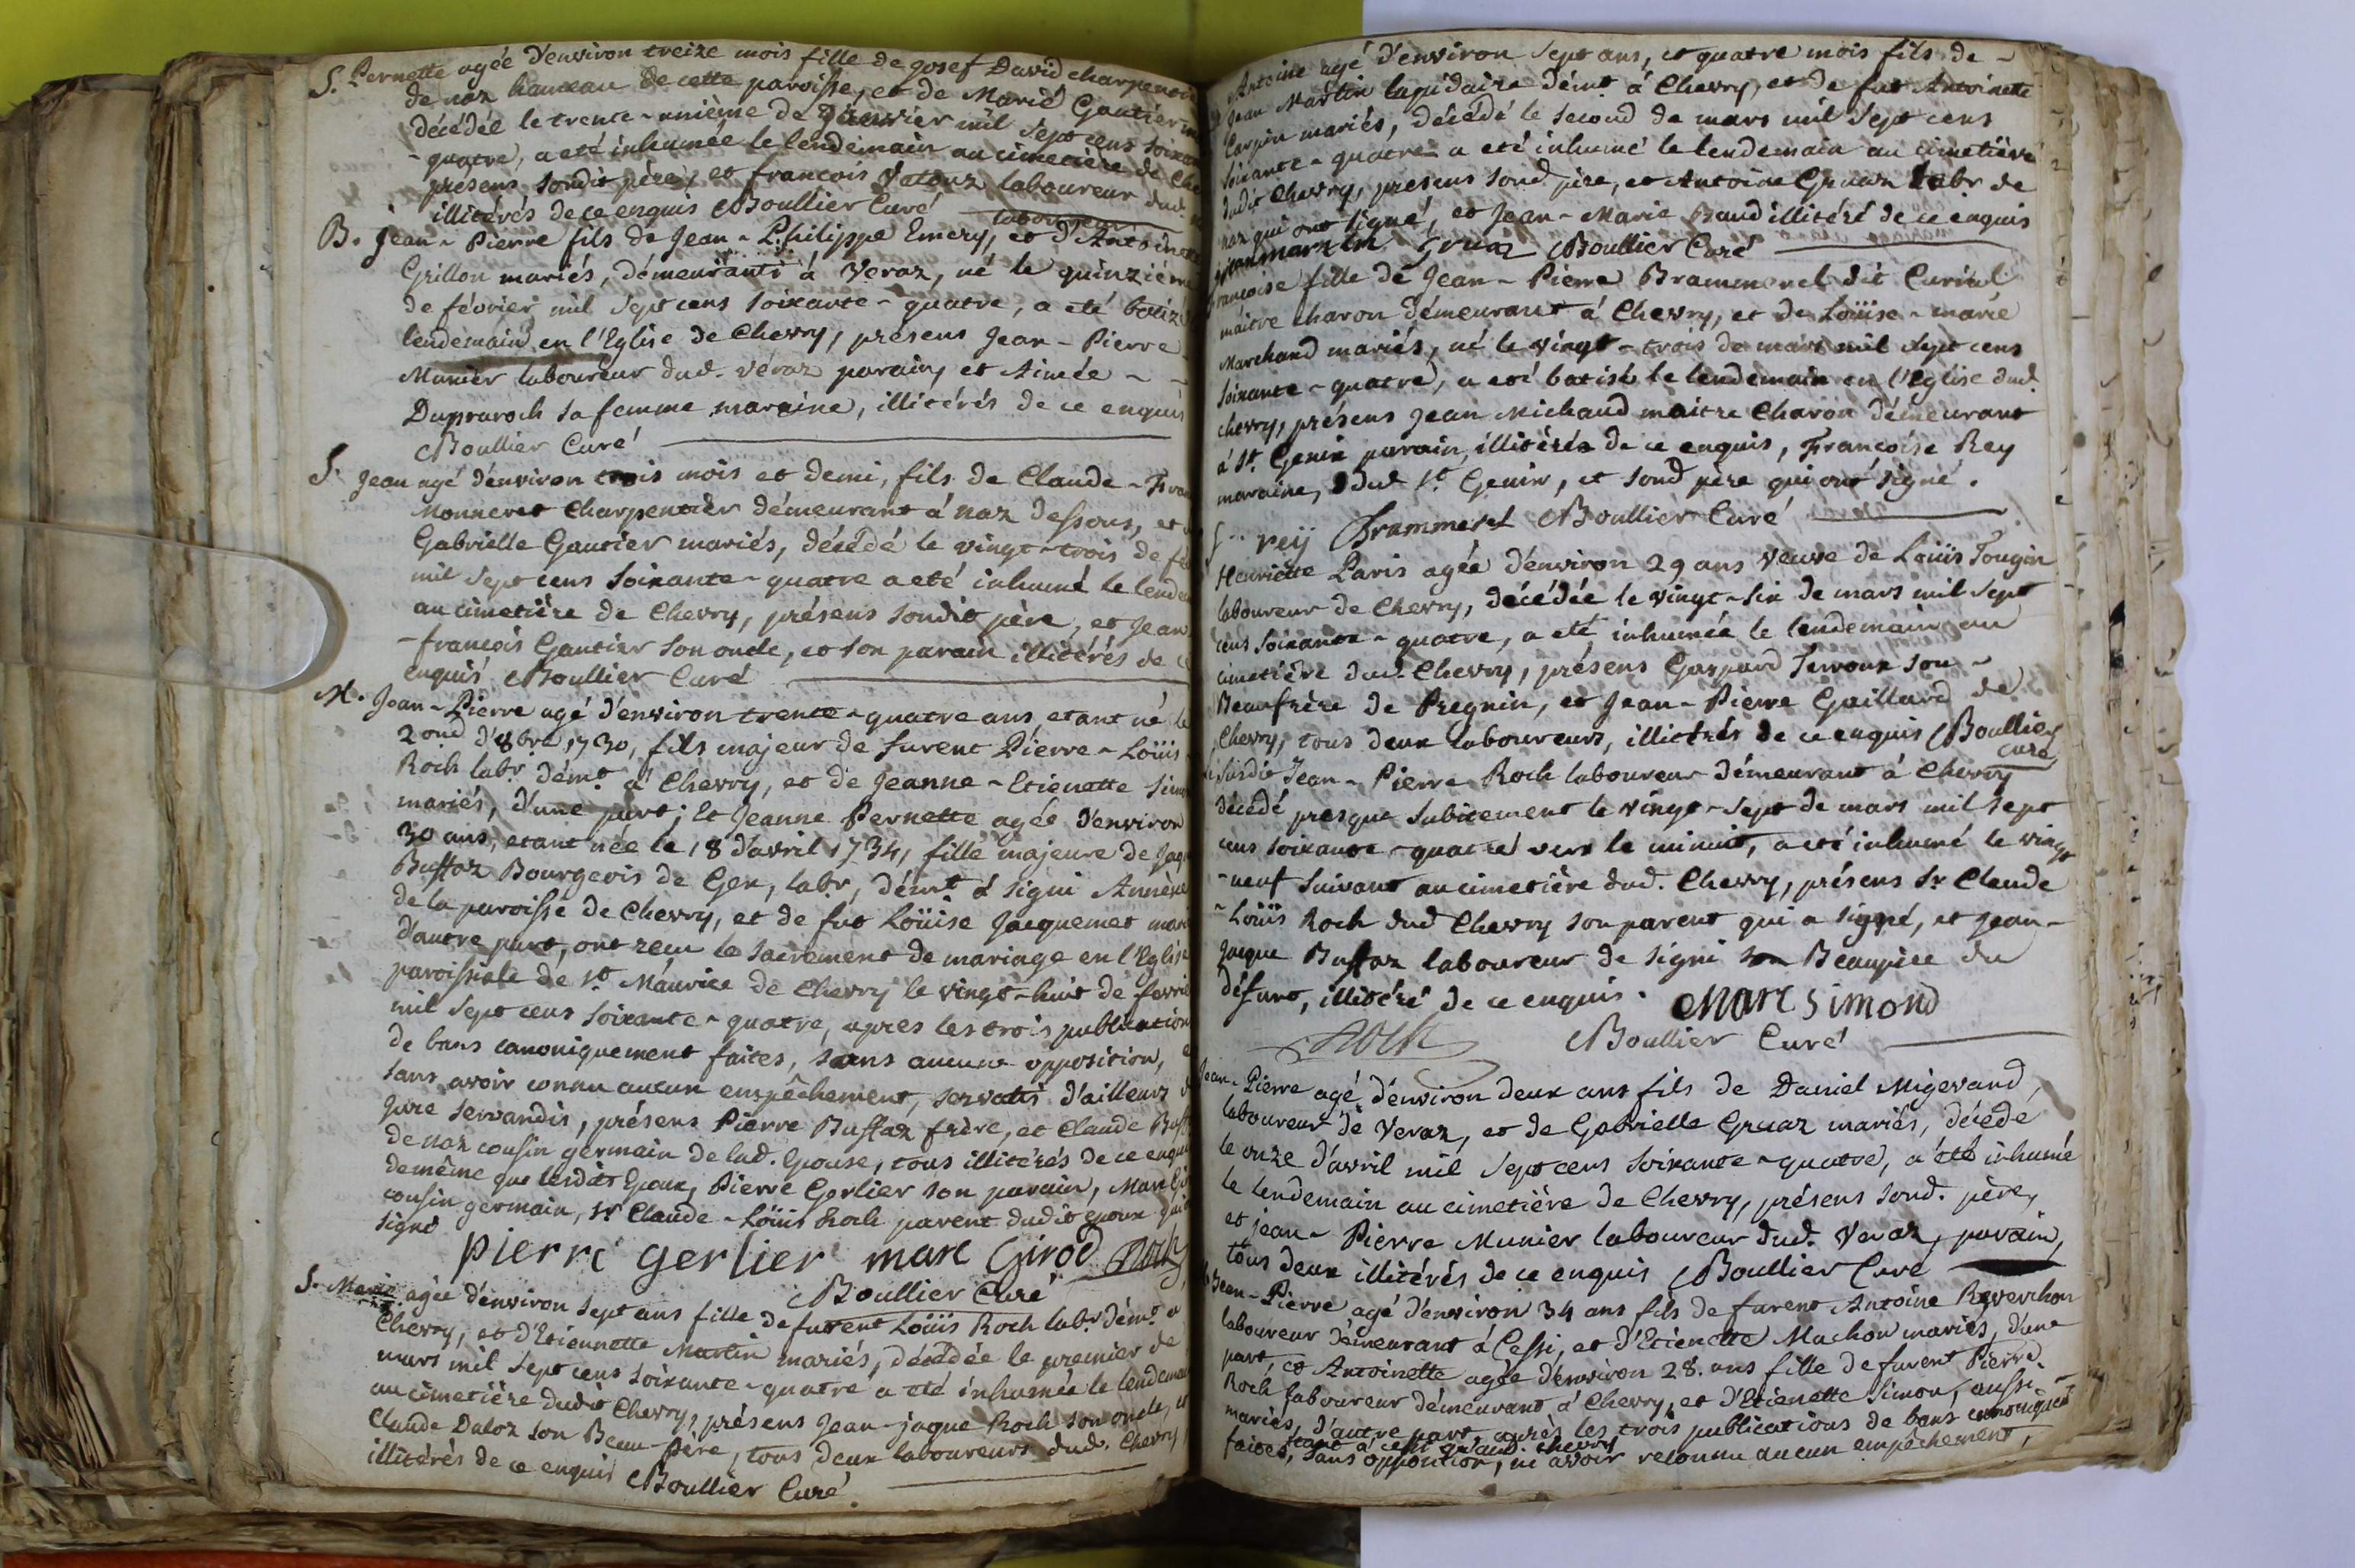 S. Pernette agée d'environ treize mois fille de Josef David charpentier
de naz hameau de cette paroisse, et de Marie Gautier
décédée le trente-unième de Janvier mil sept cens soixan
-quatre, a eté inhumée le lendemain au cimetière de Che
présens sondit père, et francois Datouz laboureur dud.
illitérés de ce enquis Boullier Curé
laboureur
B. Jean-Pierre fils de Jean-Philippe Emery, et d'Antoinette
Grillon mariés, démeurants à Veraz, né le quinzième
de février mil sept cens soixante-quatre, a eté batizé
lendemain en l'Eglise de Chevry, présens Jean-Pierre
Munier laboureur dud. véraz parain, et Aimée
Dupraroch sa femme maraine, illitérés de ce enquis
Boullier Curé
S. Jean agé d'environ trois mois et demi, fils de Claude-Fran
Monneret Charpentier démeurant à naz dessous, et
Gabrielle Gautier mariés, décédé le vingt-trois de fé
mil sept cens soixante-quatre a eté inhumé le lende
au cimetière de Chevry, présens sondit père, et Jean
-francois Gautier son oncle, et son parain illitérés de c
enquis Boullier Curé
M. Jean-Pierre agé d'environ trente-quatre ans, etant né le
2ond d'8bre 1730, fils majeur de furent Pierre-Loüis
Roch labr. démt. à Chevry, et de Jeanne-Etienette Simon
mariés, d'une part; Et Jeanne Pernette agée d'environ
30 ans, etant née le 18 d'avril 1734, fille majeure de Jaq
Buffaz Bourgeois de Gex, labr, démt à Signi Annexe
de la paroisse de Chevry, et de fut Loüise Jacquemet mari
d'autre part, ont reçu le sacrement de mariage en l'Eglise
paroissiale de St. Maurice de Chevry le vingt-huit de fevrier
mil sept cens soixante-quatre, apres les trois publications
de bans canoniquement faites, sans aucune opposition, e
sans avoir connu aucun empêchement, servatis d'ailleurs d
jure servandis, présens Pierre Buffaz frère, et Claude Buff
de naz cousin germain de lad. Epouse, tous illitérés de ce enqui
demême que lesdits Epoux, Pierre Gerlier son parain, Marc Gi
cousin germain, Sr Claude-Loüis Roch parent dudit epoux qui
signé
pierre gerlier marc Girod Roch
Boullier Curé
S. Marie agée d'environ sept ans fille de furent Loüis Roch labr. démt. à
Chevry, et d'Etiennette Martin mariés, décédée le premier de
mars mil sept cens soixante-quatre a eté inhumée le lendemain
au cimetière dudit Chevry, présens Jean-jaque Roch son oncle, et
Claude Daloz son Beau-père, tous deux laboureurs dud. Chevry
illitérés de ce enquis Boullier Curé.
Antoine agé d'environ sept ans, et quatre mois fils de
Jean Martin lapidaire démt à Chevry, et de fut Antoinette
Carpin mariés, décédé le second de mars mil sept cens
soixante-quatre a eté inhumé le lendemain au cimetière
dudit Chevry, presens sond. père, et Antoine Gruaz labr de
naz qui ont signé, et Jean-Marie Baud illitéré de ce enquis
jean martin gruaz Boullier Curé
francoise fille de Jean-Pierre Brammerel dit Curial
maitre charon démeurant à Chevry, et de Loüise-marie
Marchand mariés, né le vingt-trois de mars mil sept cens
soixante-quatre, a eté batisé le lendemain en l'Eglise dud.
chevry, présens Jean Michaud maitre Charon démeurant
à St. Genix parain, illitérés de ce enquis, Françoise Rey
maraine, dud St. Genix, et sond père qui ont signé.
rey Brammerel Boullier Curé
Henriette Paris agée d'environ 29 ans veuve de Loüis Fougin
laboureur de Chevry, décédée le vingt-six de mars mil sept
cens soixante-quatre, a eté inhumée le lendemain au
cimetière dud. Chevry, présens Gaspard Terroux son
Beaufrère de Pregnin, et Jean-Pierre Gaillard de
Chevry, tous deux laboureurs, illitérés de ce enquis Boullier
curé
Susdit Jean-Pierre Roch laboureur démeurant à Chevry
décédé presque subitement le vingt-sept de mars mil sept
cens soixante-quatre vers le minuit, a eté inhumé le vingt
-neuf suivant au cimetière dud. Chevry, présens Sr Claude
-Loüis Roch dud Chevry son parent qui a signé, et Jean-
Jaque Buffaz laboureur de Signi son Beaupère du
défunt, illitéré de ce enquis. Marc Simond
Roch Boullier Curé
Jean-Pierre agé d'environ deux ans fils de Daniel Migevand,
laboureur de Veraz, et de Gabrielle Gruaz mariés, décédé
le onze d'avril mil sept cens soixante-quatre, a été inhumé
le lendemain au cimetière de Chevry, présens sond. père,
et jean-Pierre Munier laboureur dud. Veraz, parain,
tous deux illitérés de ce enquis Boullier Curé
Jean-Pierre agé d'environ 34 ans fils de furent Antoine Reverchon
laboureur démeurant à Cessi, et d'Etienette Machon mariés, d'une
part, et Antoinette agée d'environ 28. ans fille de furent Pierre
Roch laboureur démeurant à Chevry, et d'Etienette Simon, aussi
mariés, d'autre part, après les trois publications de bans canoniquemt
tant à cessi qu'aud. chevry
faites, sans opposition, ni avoir reconnu aucun empêchement,